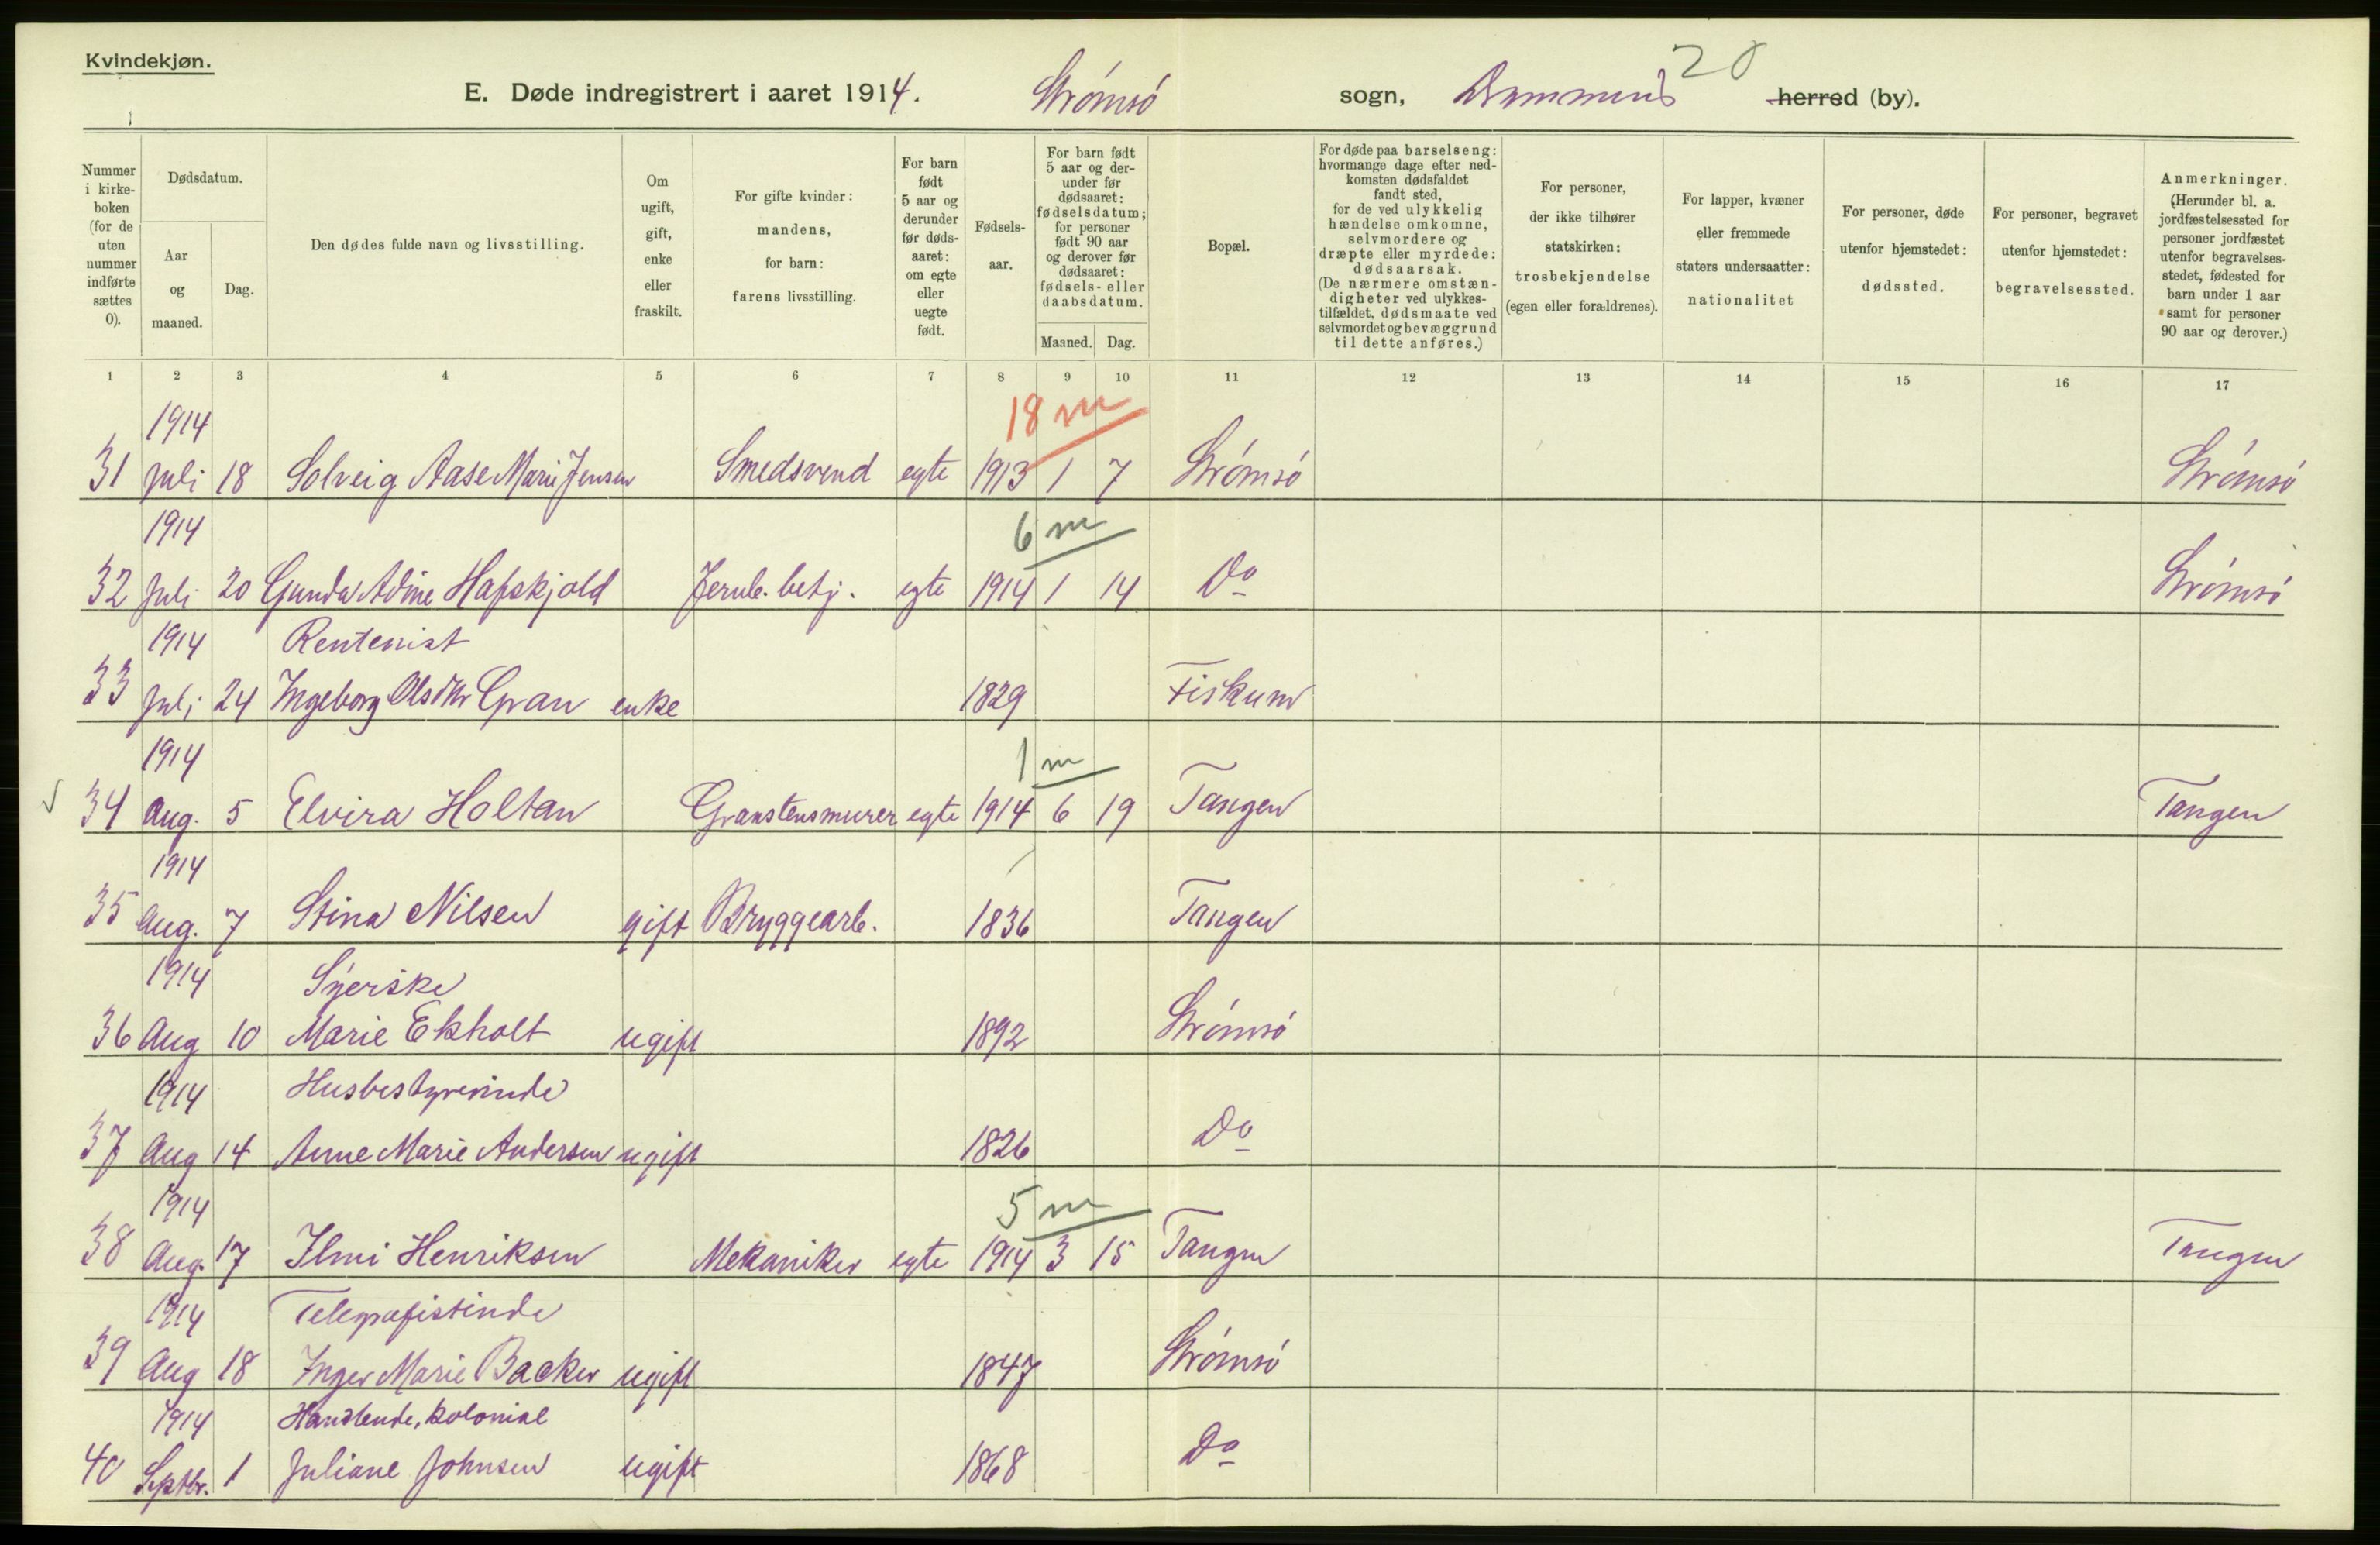 Kvindekjøn.
E. Døde indregistrert i aaret 1914. Strømsø sogn, Drammens herred (by).
20
Nummer i kirke-boken (for de uten nummer indførte sættes 0).
Dødsdatum.
Aar og maaned.
Dag.
Den dødes fulde navn og livsstilling.
Om ugift, gift, enke eller fraskilt.
For gifte kvinder: mandens, for barn: farens livsstilling.
For barn født 5 aar og derunder før døds-aaret: om egte eller uegte født.
Fødsels-aar.
For barn født 5 aar og der-under før dødsaaret: fødselsdatum; for personer født 90 aar og derover før dødsaaret: fødsels- eller daabsdatum.
Maaned. Dag.
Bopæl.
For døde paa barselseng: hvormange dage efter ned-komsten dødsfaldet fandt sted, for de ved ulykkelig hændelse omkomne, selvmordere og dræpte eller myrdede: dødsaarsak. (De nærmere omstæn-digheter ved ulykkes-tilfældet, dødsmaate ved selvmordet og bevæggrund til dette anføres.)
For personer, der ikke tilhører statskirken: trosbekjendelse (egen eller forældrenes).
For lapper, kvæner eller fremmede staters undersaatter: nationalitet
For personer, døde utenfor hjemstedet: dødssted.
For personer, begravet utenfor hjemstedet: begravelsessted.
Anmerkninger. (Herunder bl. a. jordfæstelsessted for personer jordfæstet utenfor begravelses-stedet, fødested for barn under 1 aar samt for personer 90 aar og derover.)
1 2 3 4 5 6 7 8 9 10 11 12 13 14 15 16 17
1914 18 m
31 Juli 18 Solveig Aase Marie Jensen Smedsvend egte 1913 1 7 Strømsø Strømsø
1914 6 m
32 Juli 20 Gunda Adine Hafskjold Jernb. betj. egte 1914 1 14 Do Strømsø
1914 Rentenist
33 Juli 24 Ingeborg Olsdtr Gran enke 1829 Fiskum
1914 1 m
34 Aug. 5 Elvira Holtan Granstensmurer egte 1914 6 19 Tangen Tangen
1914
35 Aug. 7 Stina Nilsen gift Bryggearb. 1836 Tangen
1914 Syerske
36 Aug 10 Marie Ekholt ugift 1892 Strømsø
1914 Husbestyrerinde
37 Aug 14 Anne Marie Andersen ugift 1826 Do
1914 5 m
38 Aug. 17 Ilmi Henriksen Mekaniker egte 1914 3 15 Tangen Tangen
1914 Telegrafistinde
39 Aug 18 Inger Marie Backer ugift 1847 Strømsø
1914 Handlende, kolonial
40 Septbr. 1 Juliane Johnsen ugift 1868 Do